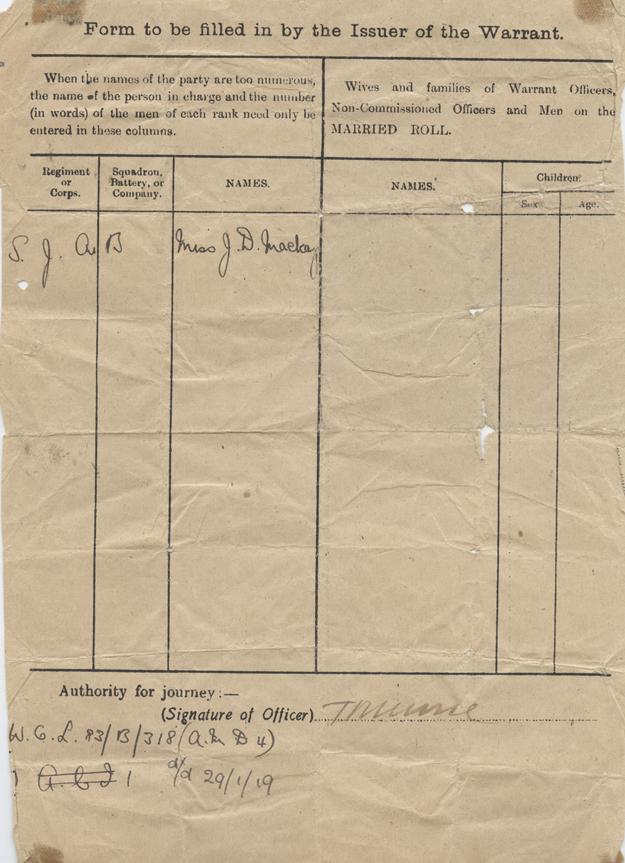 Form to be filled in by the Issuer of the Warrant.
When the names of the party are too numerous,
the name of the person in charge and the number
(in words) of the men of each rank need only be
entered in these columns.
Wives and families of Warrant Officers,
Non-Commissioned Officers and Men on the
MARRIED ROLL.
Regiment
or
Corps.
Squadron,
Battery, or
Company.
NAMES.
NAMES.
Children.
Sex
Age.
S. J. A. B Miss J. D. Mackay
Authority for journey:—
(Signature of Officer)
W. O. L. 83/B/318 (A. M. D 4)
d/d 29/1/19